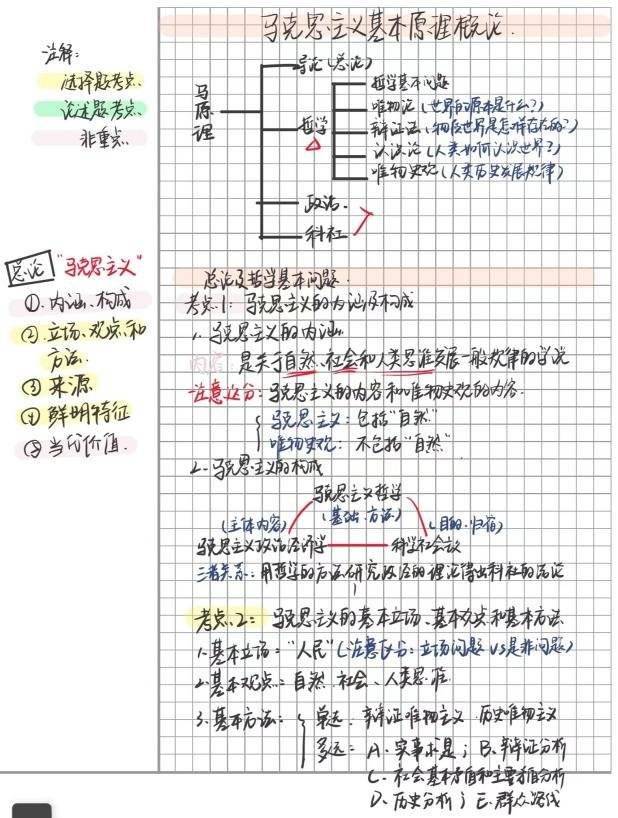 马克思主义基本原理概论.
注解:
选择题考点.
论述题考点.
非重点.
马原理
导论(总论)
哲学
哲学基本问题
唯物论(世界的原本是什么?)
辩证法(物质世界是怎样存在的?)
认识论(人类如何认识世界?)
唯物史观(人类历史发展规律)
政治.
科社
总论 "马克思主义"
①.内涵、构成
②立场、观点和
方法.
③来源
④鲜明特征
⑤当代价值.
总论及哲学基本问题.
考点1: 马克思主义的内涵及构成
1. 马克思主义的内涵.
内容: 是关于自然、社会和人类思维发展一般规律的学说
注意区分: 马克思主义的内容和唯物史观的内容.
马克思主义: 包括"自然"
唯物史观: 不包括"自然"
2. 马克思主义的构成
马克思主义哲学
(基础、方法)
(主体内容) (目的、归宿)
马克思主义政治经济学 科学社会主义
三者关系: 用哲学的方法研究政经的理论得出科社的结论
考点2: 马克思主义的基本立场、基本观点和基本方法
1.基本立场: "人民"(注意区分: 立场问题 VS 是非问题)
2.基本观点: 自然、社会、人类思维
3.基本方法: 单选: 辩证唯物主义、历史唯物主义
多选: A. 实事求是; B. 辩证分析
C. 社会基本矛盾和主要矛盾分析
D. 历史分析; E. 群众路线